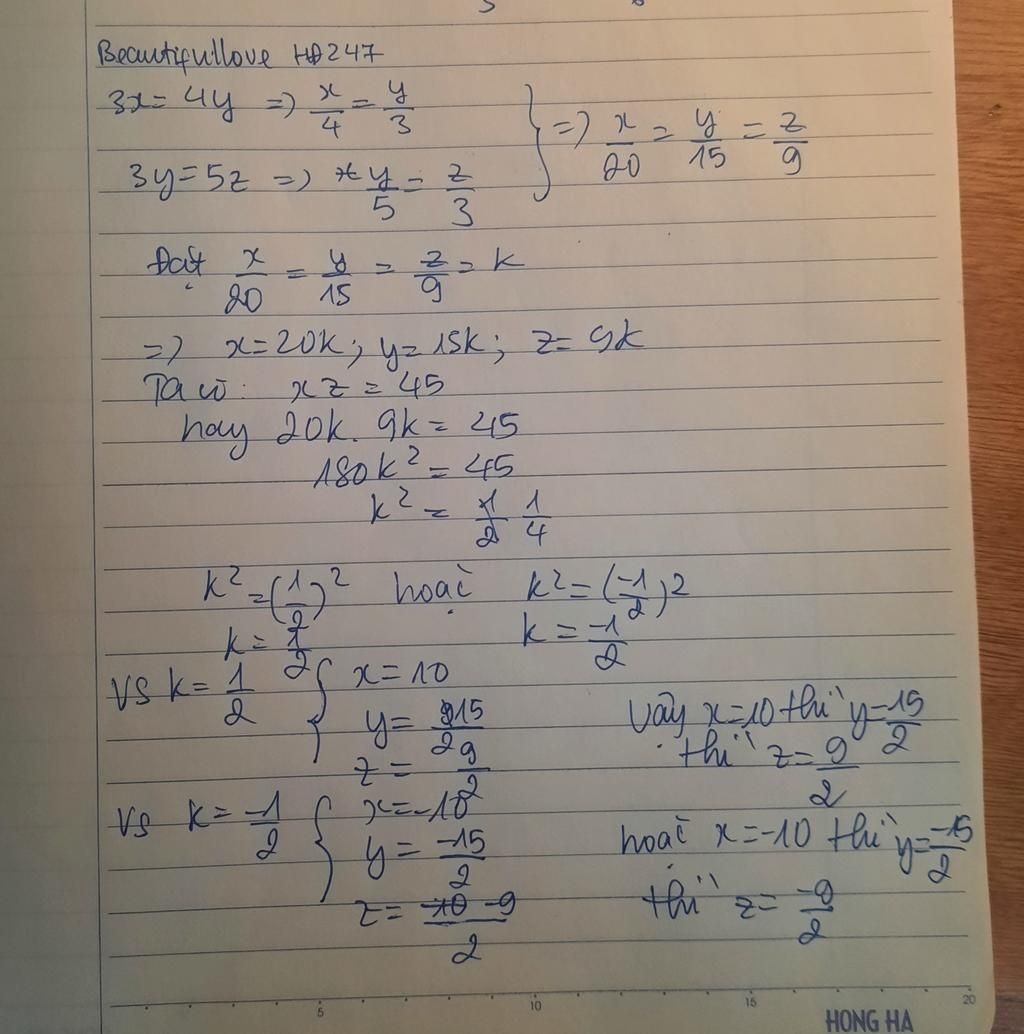 Beautifullove HĐ247
3x = 4y => x/4 = y/3
3y = 5z => y/5 = z/3
} => x/20 = y/15 = z/9
Đặt x/20 = y/15 = z/9 = k
=> x = 20k; y = 15k; z = 9k
Ta có: xz = 45
hay 20k. 9k = 45
180k² = 45
k² = 1/4
k² = (1/2)² hoặc k² = (-1/2)²
k = 1/2 k = -1/2
Vs k = 1/2 { x = 10
y = 15/2
z = 9/2
Vậy x = 10 thì y = 15/2
thì z = 9/2
Vs k = -1/2 { x = -10
y = -15/2
z = -9/2
hoặc x = -10 thì y = -15/2
thì z = -9/2
5 10 15 20
HONG HA